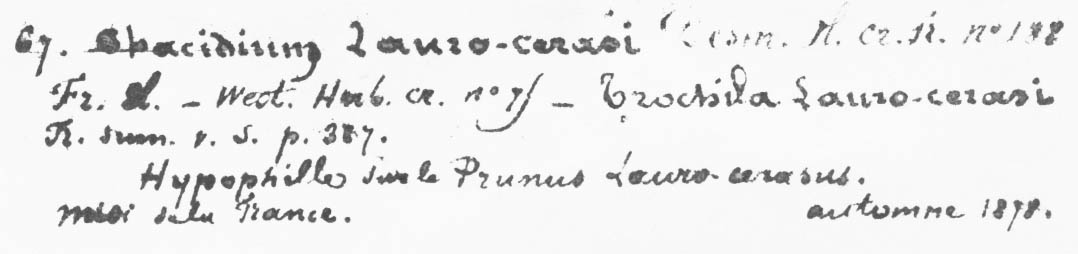 67. Spacidium Lauro-cerasi Desm. Pl. cr. Fr. no 188
Fr. - West. Herb. cr. no - Trochila Lauro-cerasi
Fr. sum. v. S. p. 387.
Hypophille sur le Prunus Lauro-cerasus.
midi de la France. automne 1878.